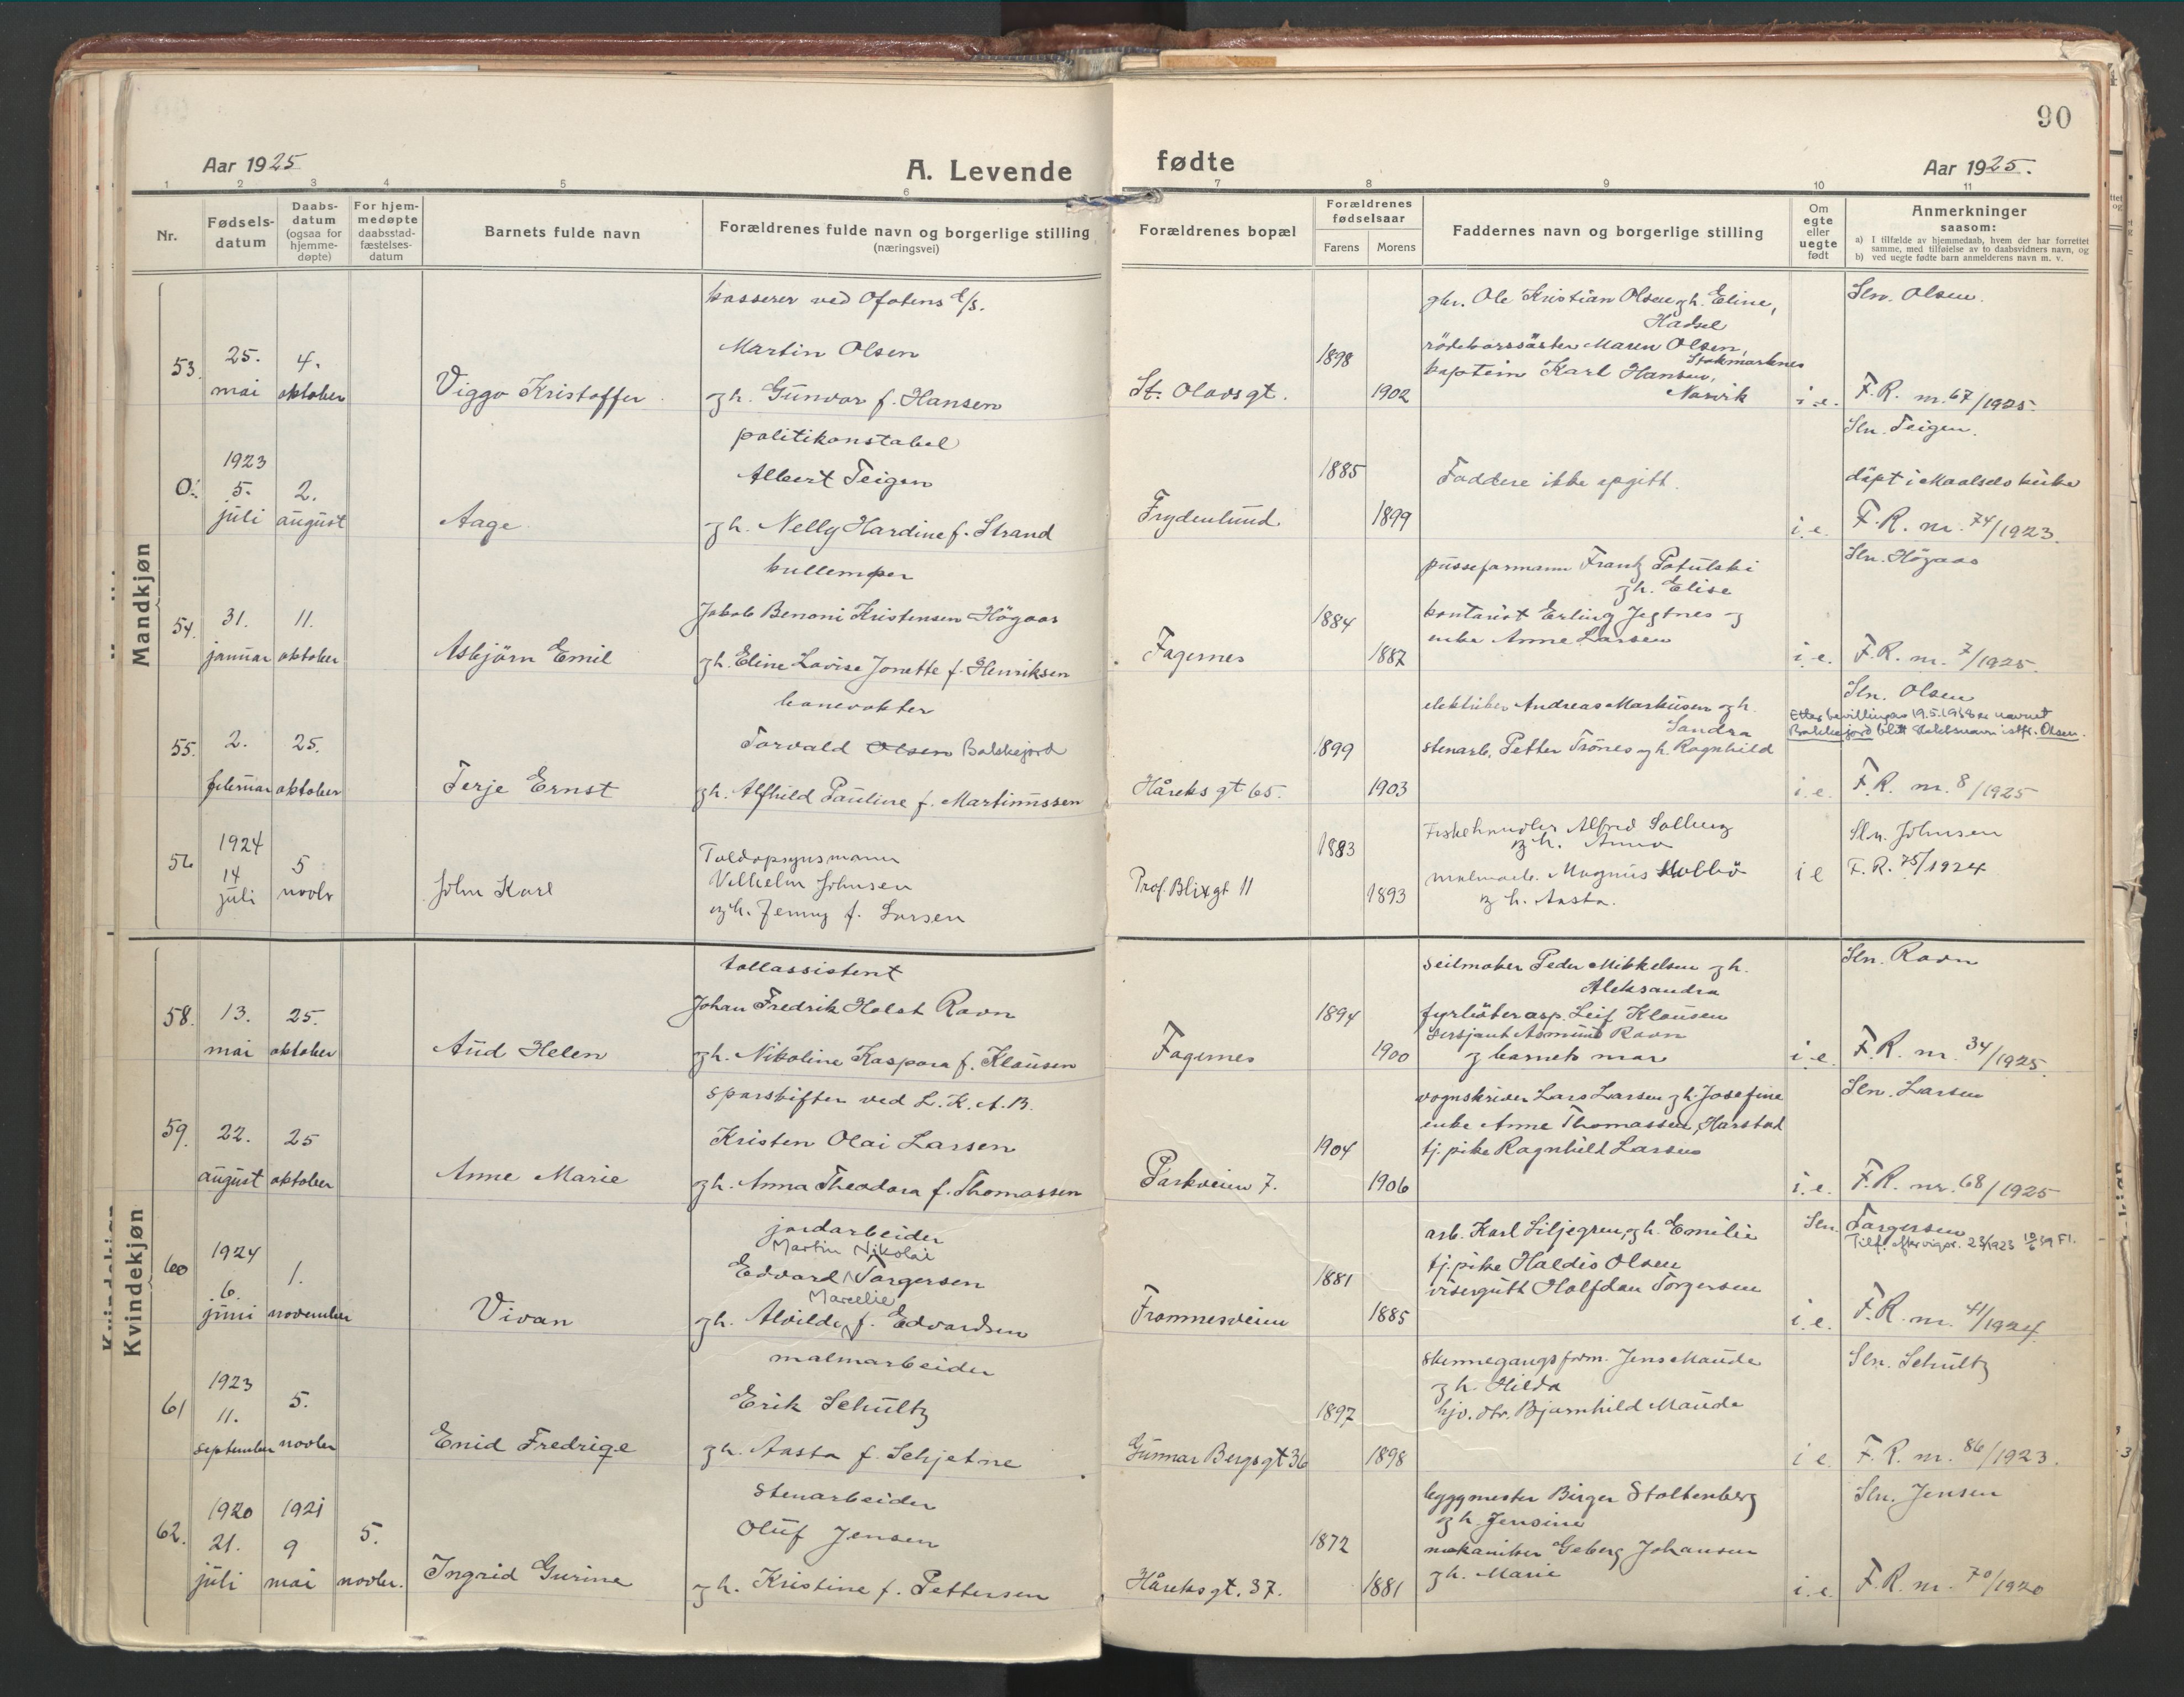 90
Aar 1925
A. Levende
fødte
Aar 1925.
1 2 3 4 5 6 7 8 9 10 11
Nr.
Fødsels-
datum
Daabs-
datum
(ogsaa for
hjemme-
døpte)
For hjem-
medøpte
daabsstad-
fæstelses-
datum
Barnets fulde navn
Forældrenes fulde navn og borgerlige stilling
(næringsvei)
Forældrenes bopæl
Forældrenes
fødselsaar
Farens Morens
Faddernes navn og borgerlige stilling
Om
egte
eller
uegte
født
Anmerkninger
saasom:
a) I tilfælde av hjemmedaab, hvem der har forrettet
samme, med tilføielse av to daabsvidners navn, og
b) ved uegte fødte barn anmelderens navn m. v.
Mandkjøn
53.
25.
mai
4.
oktober
Viggo Kristoffer
kasserer ved Ofotens E/s.
Martin Olsen
og h. Gunvor f. Hansen
St. Olavsgt.
1898
1902
gbr. Ole Kristian Olsen og h. Eline,
Hadsel
rödekorssöster Maren Olsen,
Stokmarknes
kaptein Karl Hansen,
Narvik
i. e.
Sln. Olsen.
F.R. nr. 67/1925.
0.
1923
5.
juli
2.
august
Aage
politikonstabel
Albert Teigen
og h. Nelly Hardine f. Strand
Frydenlund
1885
1899
Faddere ikke opgitt.
i. e.
Sln. Teigen.
døpt i Maalselv kirke
F.R. nr. 74/1923.
54.
31.
januar
11.
oktober
Asbjörn Emil
kullemper
Jakob Benoni Kristensen Högaas
og h. Eline Lovise Jonette f. Henriksen
Fagernes
1884
1887
pusseformann Frantz Potulski
og h. Elise
kontorist Erling Jegtnes og
enke Anne Larsen
i. e.
Sln. Högaas
F.R. nr. 7/1925.
55.
2.
februar
25.
oktober
Terje Ernst
banevokter
Torvald Olsen Balskejord
og h. Alfhild Pauline f. Martinussen
Håreks gt 65.
1899
1903
elektriker Andreas Markussen og h.
Sandra
stenarb. Petter Trönes og h. Ragnhild
i. e.
Sln. Olsen
Etter bevilling av 19.5.1938 er navnet
Balskejord blitt slektsnavn istf. Olsen.
F.R. nr. 8/1925
56
1924
14
juli
5
novbr
John Karl
Toldopsynsmann
Vilhelm Johnsen
og h. Jenny f. Larsen
Prof. Blixgt 11
1883
1893
Fiskehandler Alfred Solberg
og h. Anna
malmarb. Magnus
og h. Aasta.
i e
Sln. Johnsen
F.R. 75/1924
Kvindekjøn
58.
13.
mai
25.
oktober
Aud Helen
tollassistent
Johan Fredrik Holst Ravn
og h. Nikoline Kaspara f. Klausen
Fagernes
1894
1900
seilmaker Peder Mikkelsen og h.
Aleksandra
fyrböterasp. Leif Klausen
sersjant Asmund Ravn
og barnets mor
i. e.
Sln. Ravn
F.R. nr. 34/1925.
59.
22.
august
25
oktober
Anne Marie
sporskifter ved L.K.A.B.
Kristen Olai Larsen
og h. Anna Theodora f. Thomassen
Parkveien 7.
1904
1906
vognskriver Lars Larsen og h. Josefine
enke Anne Thomassen, Harstad
tj. pike Ragnhild Larsen
i. e.
Sln. Larsen
F.R. nr. 68/1925
60
1924
6.
juni
1.
november
Vivan
jordarbeider
Martin Nikolai
Edvard Torgersen
Marcelie
og h. Alvilde f. Edvardsen
Framnesveien
1881
1885
arb. Karl Liljegren og h. Emilie
tj. pike Haldis Olsen
visergutt Halfdan Torgersen
i. e.
Sln. Torgersen
F.R. nr. 41/1924.
61
1923
11.
september
5.
novber
Enid Fredrige
malmarbeider
Erik Schultz
og h. Aasta f. Schjetne
Gunnar Bergs gt 36
1897
1898
skinnegangsform. Jens Maude
og h. Hilda
hjv. dtr. Bjarnhild Maude
i e.
Sln. Schultz
F.R. nr. 86/1923.
62.
1920
21.
juli
1921
9
mai
5.
novbr.
Ingrid Gurine
stenarbeider
Oluf Jensen
og h. Kristine f. Pettersen
Håreksgt. 37.
1872
1881
byggmester Birger Stoltenberg
og h. Jensine
mekaniker Geberg Johansen
og h. Marie
i. e.
Sln. Jensen
F.R. nr. 70/1920